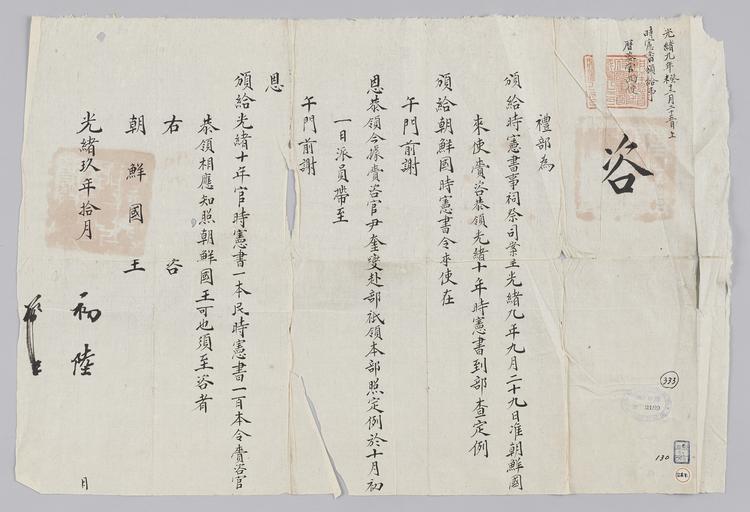 光緒九年癸十一月二十五日上
時憲書頒給事
曆咨官內使
咨
禮部為
頒給時憲書事祠祭司案呈光緒九年九月二十九日准朝鮮國
來使賫咨恭領光緒十年時憲書到部查定例
頒給朝鮮國時憲書令來使在
午門前謝
恩恭領今據賫咨官尹奎燮赴部祇領本部照定例於十月初
一日派員帶至
午門前謝
恩
頒給光緒十年官時憲書一本民時憲書一百本令賫咨官
恭領相應知照朝鮮國王可也須至咨者
右咨
朝鮮國王
光緒玖年拾月初陸
日
333
130